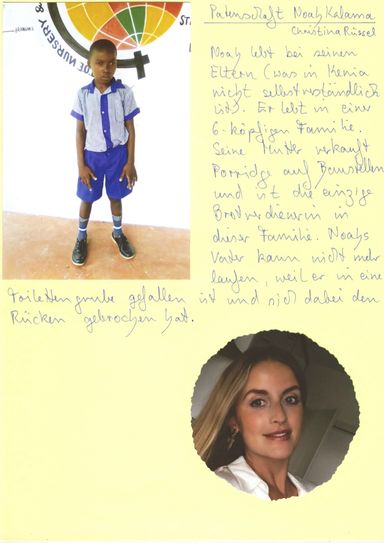 NURSERY &
Patenschaft Noah Kalama
Christina Rüssel
Noah lebt bei seinen
Eltern (was in Kenia
nicht selbstverständlich
ist). Er lebt in einer
6-köpfigen Familie.
Seine Mutter verkauft
Porridge auf Baustellen
und ist die einzige
Brotverdienerin in
dieser Familie. Noahs
Vater kann nicht mehr
laufen, weil er in eine
Toilettengrube gefallen ist und sich dabei den
Rücken gebrochen hat.